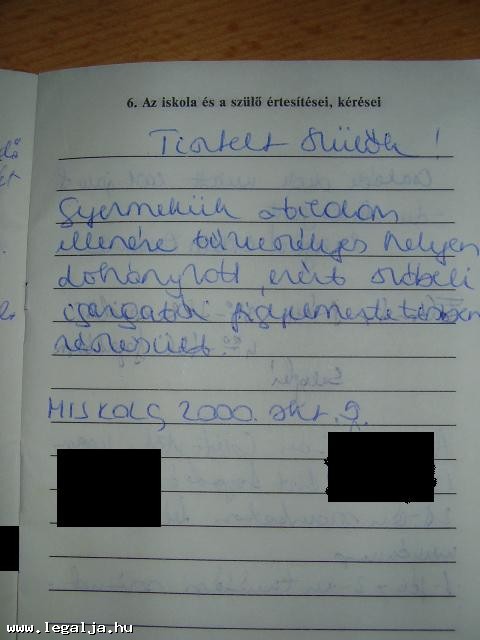 6. Az iskola és a szülő értesítései, kérései
Tisztelt Szülők!
Gyermekük a tilalom
ellenére tűzveszélyes helyen
dohányzott, ezért szóbeli
igazgatói figyelmeztetésben
részesült.
Miskolc, 2000. okt. 9.
www.legalja.hu